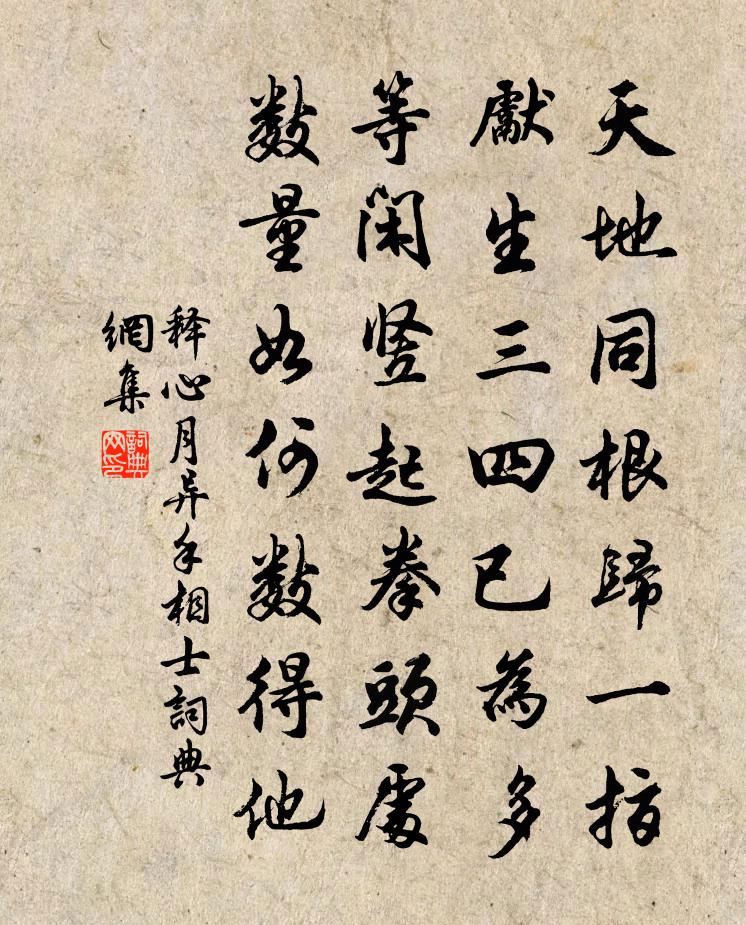 天地同根歸一指
獻生三四已為多
等閑竖起拳頭處
數量如何數得他
释心月异手相士詞典
網集
詞典
网印